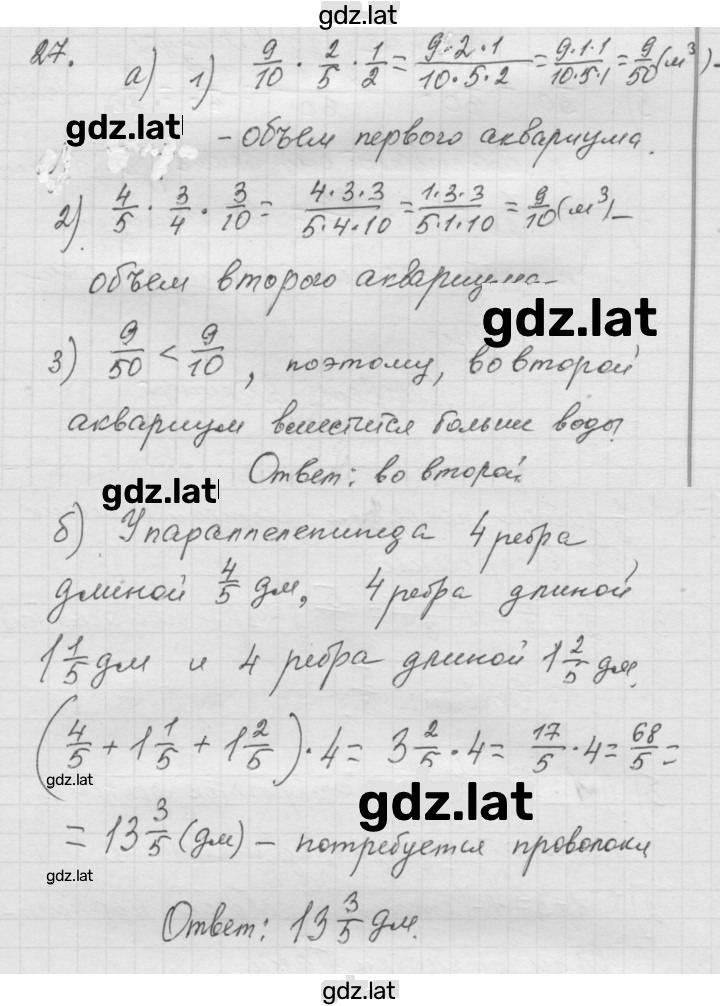 gdz.lat
27. а) 1) 9/10 · 2/5 · 1/2 = 9·2·1/10·5·2 = 9·1·1/10·5·1 = 9/50 (м³) –
gdz.lat
– объем первого аквариума.
2) 4/5 · 3/4 · 3/10 = 4·3·3/5·4·10 = 1·3·3/5·1·10 = 9/10 (м³) –
объем второго аквариума.
gdz.lat
3) 9/50 < 9/10, поэтому, во второй
аквариум вместится больше воды
Ответ: во второй.
gdz.lat
б) У параллелепипеда 4 ребра
длиной 4/5 дм, 4 ребра длиной
1 1/5 дм и 4 ребра длиной 1 2/5 дм.
(4/5 + 1 1/5 + 1 2/5) · 4 = 3 2/5 · 4 = 17/5 · 4 = 68/5 =
gdz.lat
gdz.lat
= 13 3/5 (дм) – потребуется проволоки
gdz.lat
Ответ: 13 3/5 дм.
gdz.lat